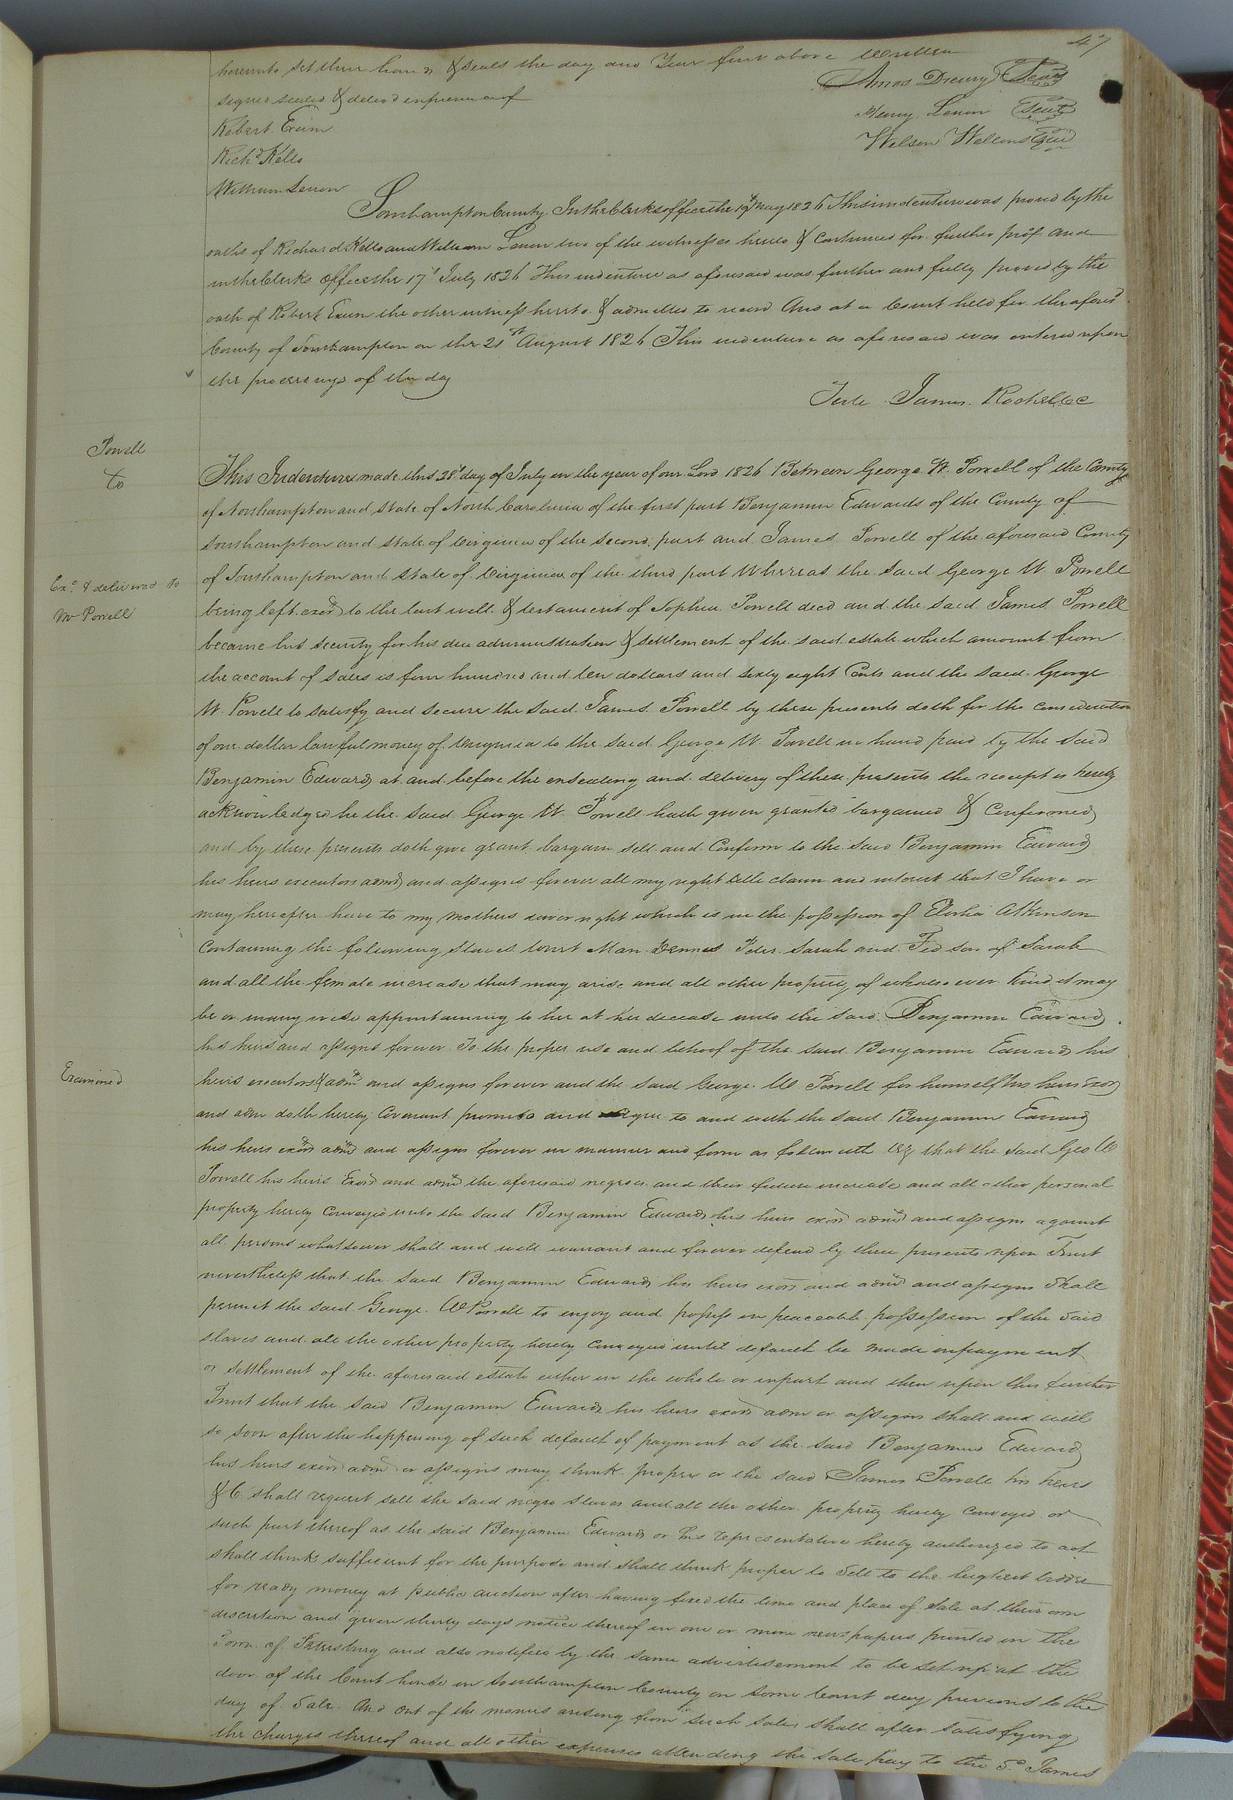 47
hereunto set their hands & seals the day and Year first above written
signed sealed & delivd in presence of
Amos Drewry Seal
Robert Exum
Henry Lenow Seal
Richd Kello
Wilson Wellons Seal
William Lenow
Southampton County In the Clerks office the 19th May 1826 This indenture was proved by the
oaths of Richard Kello and William Lenow two of the witnesses hereto & continued for further proof and
in the Clerks office the 17th July 1826 This indenture as aforesaid was further and fully proved by the
oath of Robert Exum the other witness hereto & admitted to record And at a Court held for the aforesd
County of Southampton on the 21st August 1826 This indenture as aforesaid was entered upon
the proceedings of the day
Teste James Rochelle CC
Powell
to
Exd & delivered to
Mr Powell
Examined
This Indenture made this 28th day of July in the year of our Lord 1826 Between George W. Powell of the County
of Northampton and State of North Carolina of the first part Benjamin Edwards of the County of
Southampton and State of Virginia of the second part and James Powell of the aforesaid County
of Southampton and State of Virginia of the third part Whereas the said George W Powell
being left exor to the last will & testament of Sophia Powell decd and the said James Powell
became his security for his due administration & settlement of the said estate which amount from
the account of sales is four hundred and ten dollars and sixty eight Cents and the said George
W. Powell to satisfy and secure the said James Powell by these presents doth for the consideration
of one dollar lawful money of Virginia to the said George W. Powell in hand paid by the said
Benjamin Edwards at and before the ensealing and delivery of these presents the receipt is hereby
acknowledged he the said George W. Powell hath given granted bargained & confirmed
and by these presents doth give grant bargain sell and Confirm to the said Benjamin Edwards
his heirs executors admrs and assigns forever all my right title claim and interest that I have or
may hereafter have to my mothers dower right which is in the possession of Elisha Atkinson
Containing the following slaves towit Man Dennis Peter Sarah and Fed son of Sarah
and all the female increase that may arise and all other property of whatsoever kind it may
be or in any wise appertaining to her at her decease unto the said Benjamin Edwards
his heirs and assigns forever To the proper use and behoof of the said Benjamin Edwards his
heirs executors & admrs and assigns forever and the said George W Powell for himself his heirs exors
and admrs doth hereby Covenant promise and agree to and with the said Benjamin Edwards
his heirs exors admrs and assigns forever in manner and form as followeth viz that the said Geo W
Powell his heirs Exors and admrs the aforesaid negroes and their future increase and all other personal
property hereby conveyed unto the said Benjamin Edwards his heirs exors admrs and assigns against
all persons whatsoever shall and will warrant and forever defend by these presents upon Trust
nevertheless that the said Benjamin Edwards his heirs exors and admrs and assigns Shall
permit the said George W Powell to enjoy and possess in peaceable possession of the said
slaves and all the other property hereby conveyed until default be made in payment
or settlement of the aforesaid estate either in the whole or in part and then upon this further
Trust that the said Benjamin Edwards his heirs exors admrs or assigns shall and will
so soon after the happening of such default of payment as the said Benjamin Edwards
his heirs exors admrs or assigns may think proper or the said James Powell his heirs
&C shall request sell the said negro slaves and all the other property hereby conveyed or
such part thereof as the said Benjamin Edwards or his representative hereby authorized to act
shall think sufficient for the purpose and shall think proper to Sell to the highest bidder
for ready money at public auction after having fixed the time and place of sale at their own
discretion and given thirty days notice thereof in one or more newspapers printed in the
Town of Petersburg and also notified by the same advertisement to be set up at the
door of the Court house in Southampton County on some Court day previous to the
day of Sale. And out of the monies arising from such sales shall after satisfying
the charges thereof and all other expenses attending the sale pay to the Sd James